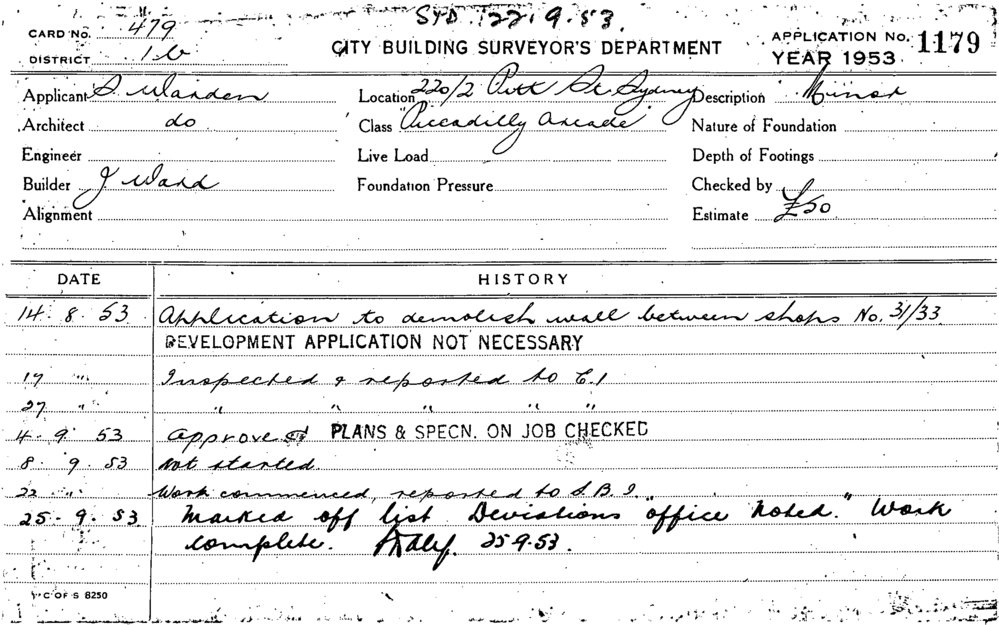 SYD. 22.9.53.
CARD No. 479
CITY BUILDING SURVEYOR'S DEPARTMENT
APPLICATION No. 1179
DISTRICT 1b
YEAR 1953
Applicant S. Warden
Location 220/2 Pitt St. Sydney
Description Minor
Architect do
Class "Piccadilly Arcade"
Nature of Foundation
Engineer
Live Load
Depth of Footings
Builder J. Ward
Foundation Pressure
Checked by
Alignment
Estimate £50
DATE HISTORY
14. 8. 53 Application to demolish wall between shops No. 31/33
DEVELOPMENT APPLICATION NOT NECESSARY
17 " Inspected & reported to C.I
27 " " " " " "
4. 9. 53 Approved PLANS & SPECN. ON JOB CHECKED
8. 9. 53 Not started
22 " Work commenced, reported to S.B.I.
25. 9. 53 Marked off list Deviations "office noted." Work
complete. 25.9.53.
C OF S 8250